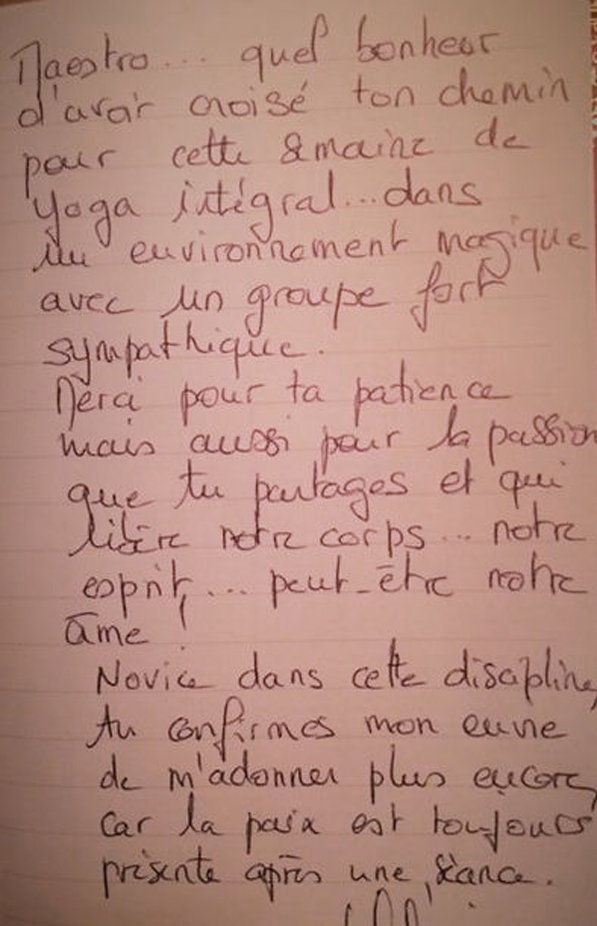 Maestro... quel bonheur
d'avoir croisé ton chemin
pour cette semaine de
yoga intégral...dans
un environnement magique
avec un groupe fort
sympathique.
Merci pour ta patience
mais aussi pour la passion
que tu partages et qui
libère notre corps... notre
esprit... peut-être notre
âme !
Novice dans cette discipline,
tu confirmes mon envie
de m'adonner plus encore,
car la paix est toujours
présente après une séance.